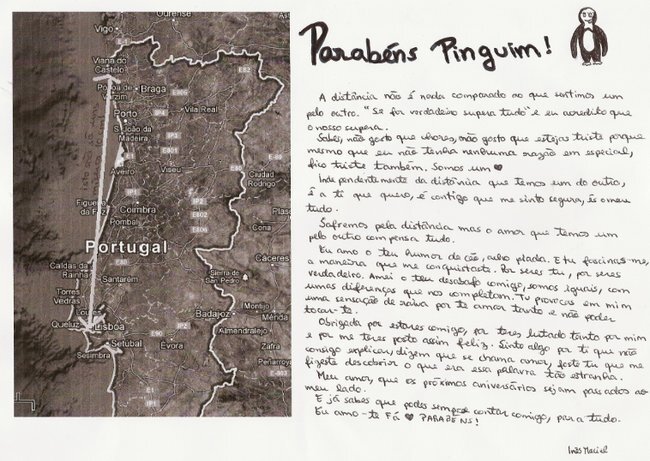 Parabéns Pinguim!
A distância não é nada comparado ao que sentimos um
pelo outro. "Se for verdadeiro supera tudo" e eu acredito que
o nosso supera.
Sabes, não gosto que chores, não gosto que estejas triste porque
mesmo que eu não tenha nenhuma razão em especial,
fico triste também. Somos um ♥
Independentemente da distância que temos um do outro,
é a ti que quero, é contigo que me sinto segura, és o meu
tudo.
Sofremos pela distância mas o amor que temos um
pelo outro compensa tudo.
Eu amo o teu humor de cão, minha
maneira que me conquistaste. Por seres tu, por seres
verdadeiro. Amei o teu desabafo comigo, somos iguais, com
umas diferenças que nos completam. Tu provocas em mim
uma sensação de raiva por te amar tanto e não poder
tocar-te.
Obrigada por estares comigo, por teres lutado tanto por mim
e por me teres posto assim feliz. Sinto algo por ti que não
consigo explicar, dizem que se chama amor, foste tu que me
fizeste descobrir o que era essa palavra tão estranha.
Meu amor, que os próximos aniversários sejam passados ao
meu lado.
E já sabes que podes sempre contar comigo, para tudo.
Eu amo-te Fá ♥ PARABÉNS!
Inês Maciel
Ourense
Vigo
Viana do
Castelo
E82
Braga
E805
Póvoa de
Varzim
Vila Real
Porto
IP4
S. João da
Madeira
IP3
E801
Aveiro
Viseu
Ciudad
Rodrigo
Figueira
da Foz
Coimbra
E802
E806
Pombal
IP2
Plas
Coria
Portugal
Cáceres
Caldas da
Rainha
Santarém
Sierra de
San Pedro
Torres
Vedras
Loures
Montijo
Mérida
Queluz
Lisboa
Badajoz
Almendralejo
E90
Setúbal
Évora
Zafra
Sesimbra
Peñarroya
IP2
E1
IP1
E803